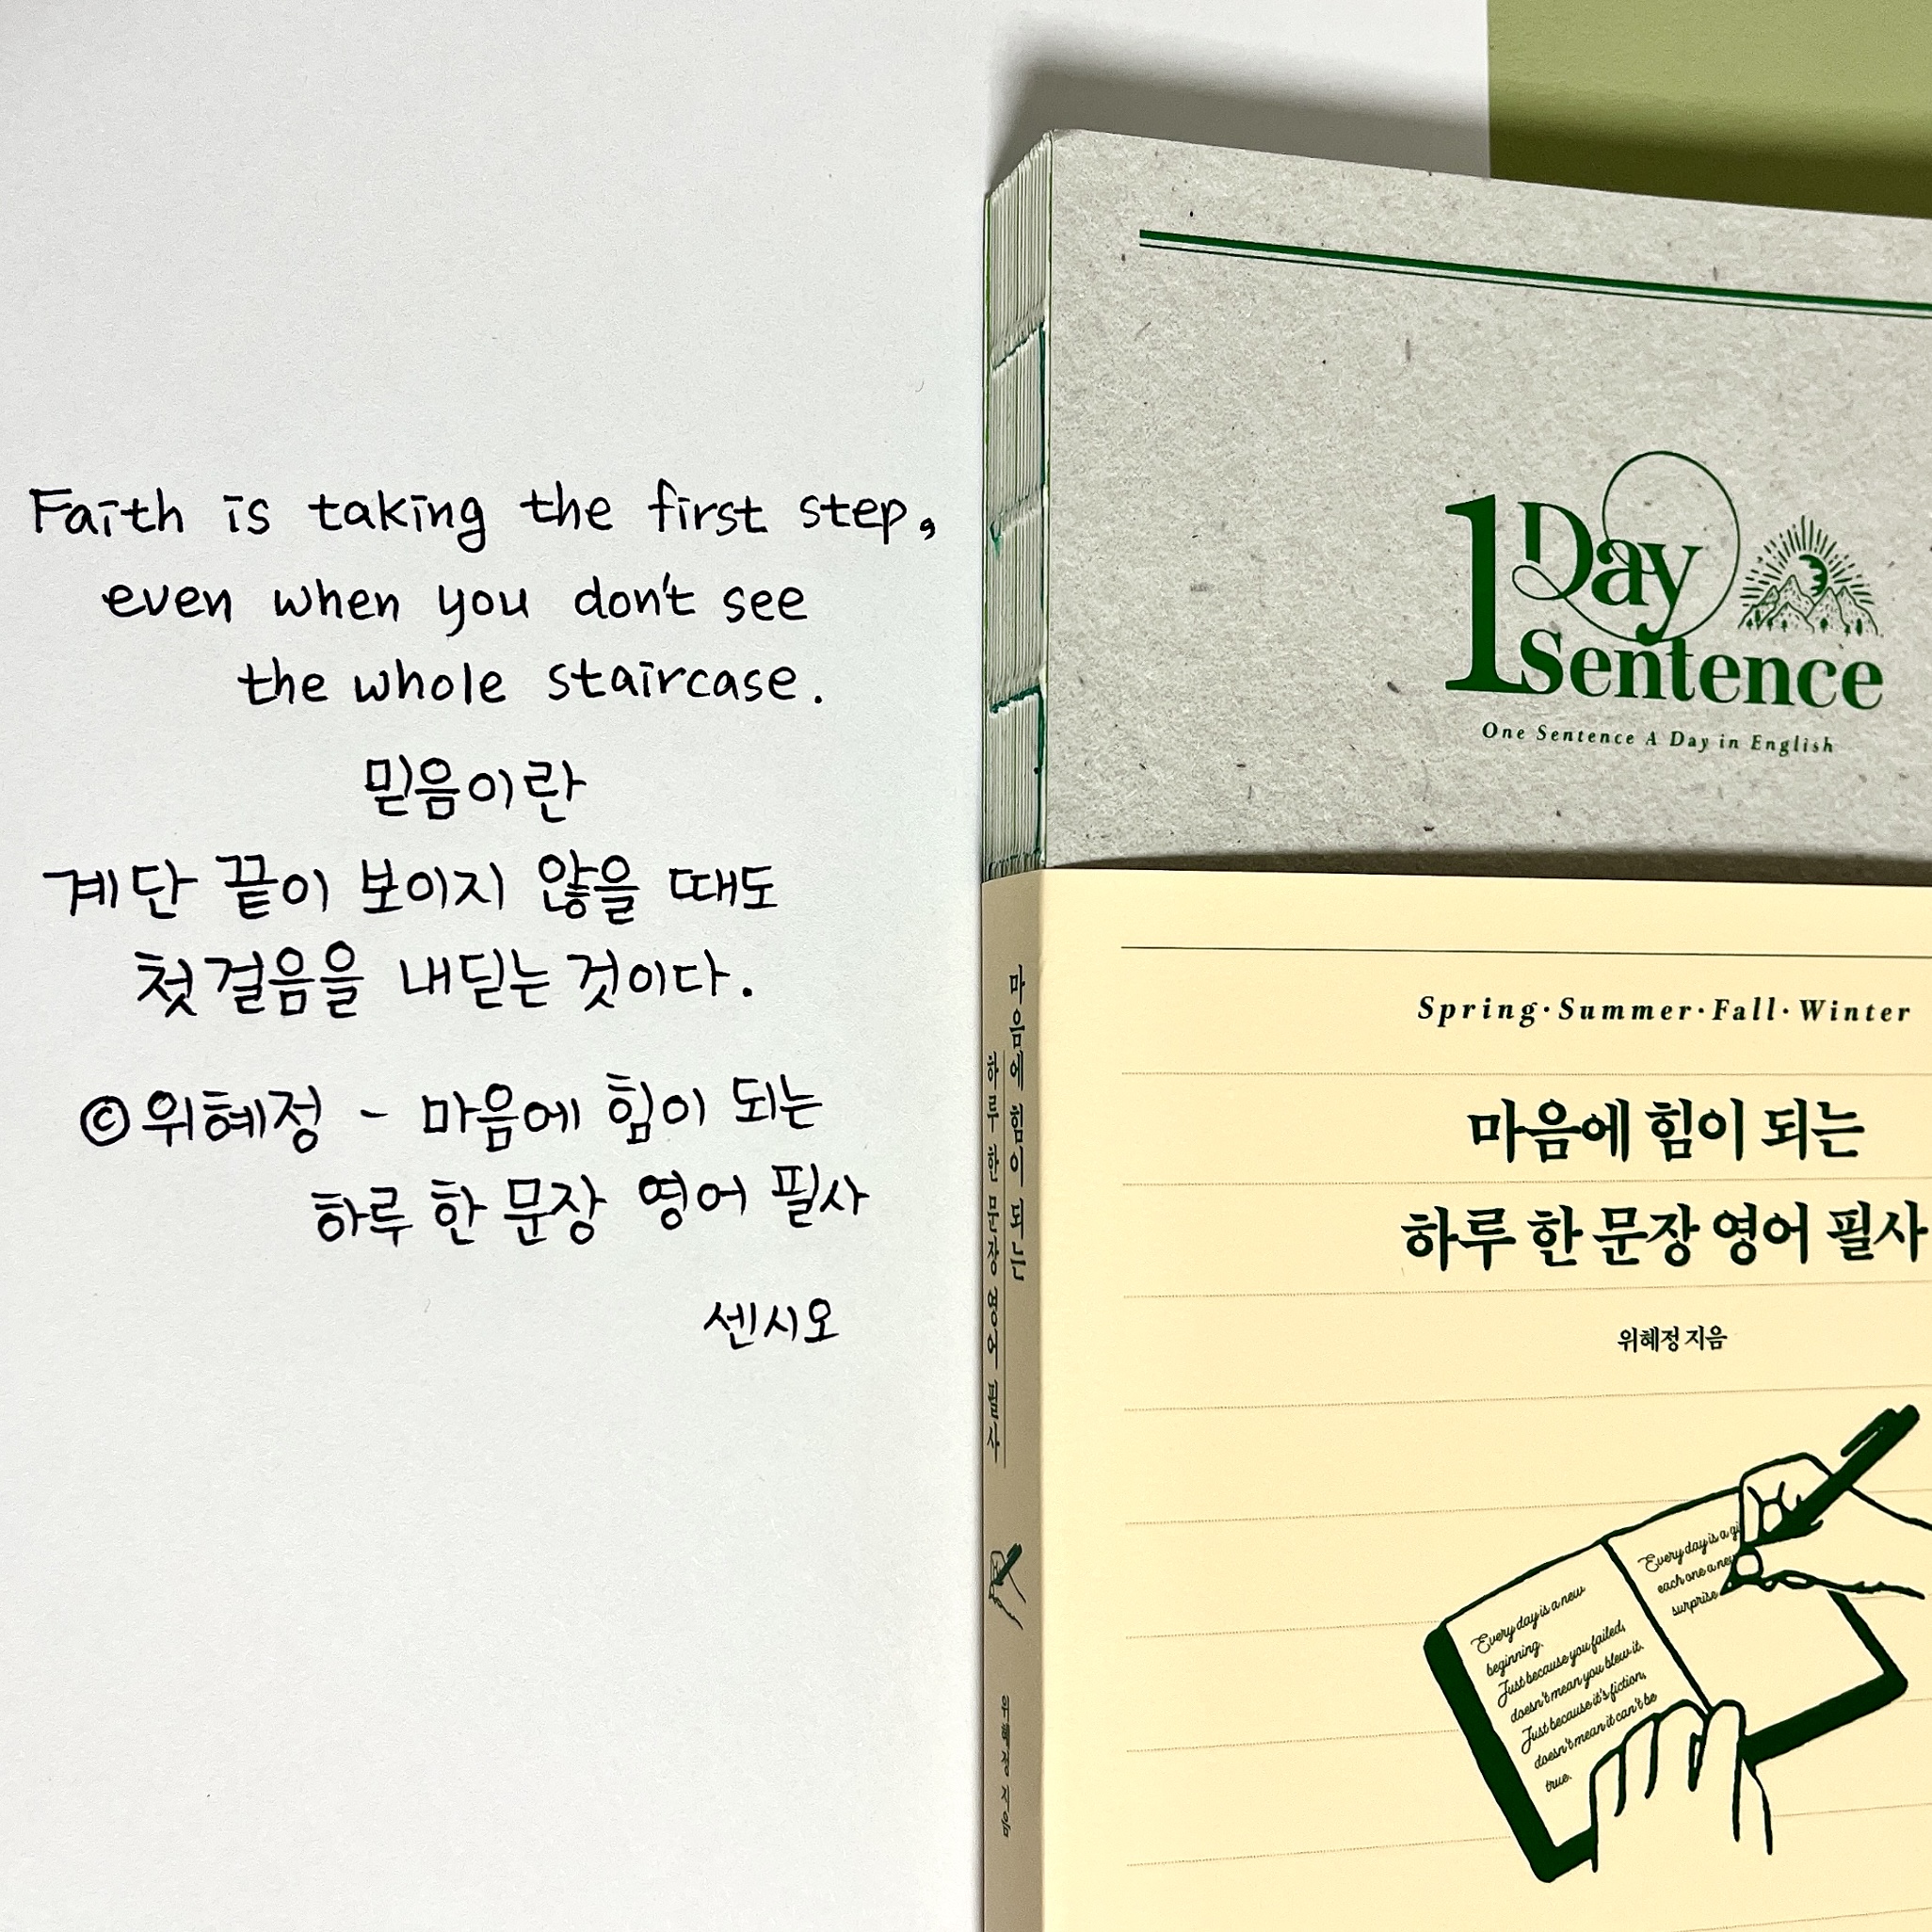 Faith is taking the first step,
even when you don't see
the whole staircase.
믿음이란
계단 끝이 보이지 않을 때도
첫 걸음을 내딛는 것이다.
©위혜정 - 마음에 힘이 되는
하루 한 문장 영어 필사
센시오
마음에 힘이 되는
하루 한 문장 영어 필사
위혜정 지음
1 Day
Sentence
One Sentence A Day in English
Spring·Summer·Fall·Winter
마음에 힘이 되는
하루 한 문장 영어 필사
위혜정 지음
Every day is a new
beginning.
Just because you failed,
doesn't mean you blew it.
Just because it's fiction,
doesn't mean it can't be
true.
Every day is a
each one a new
surprise